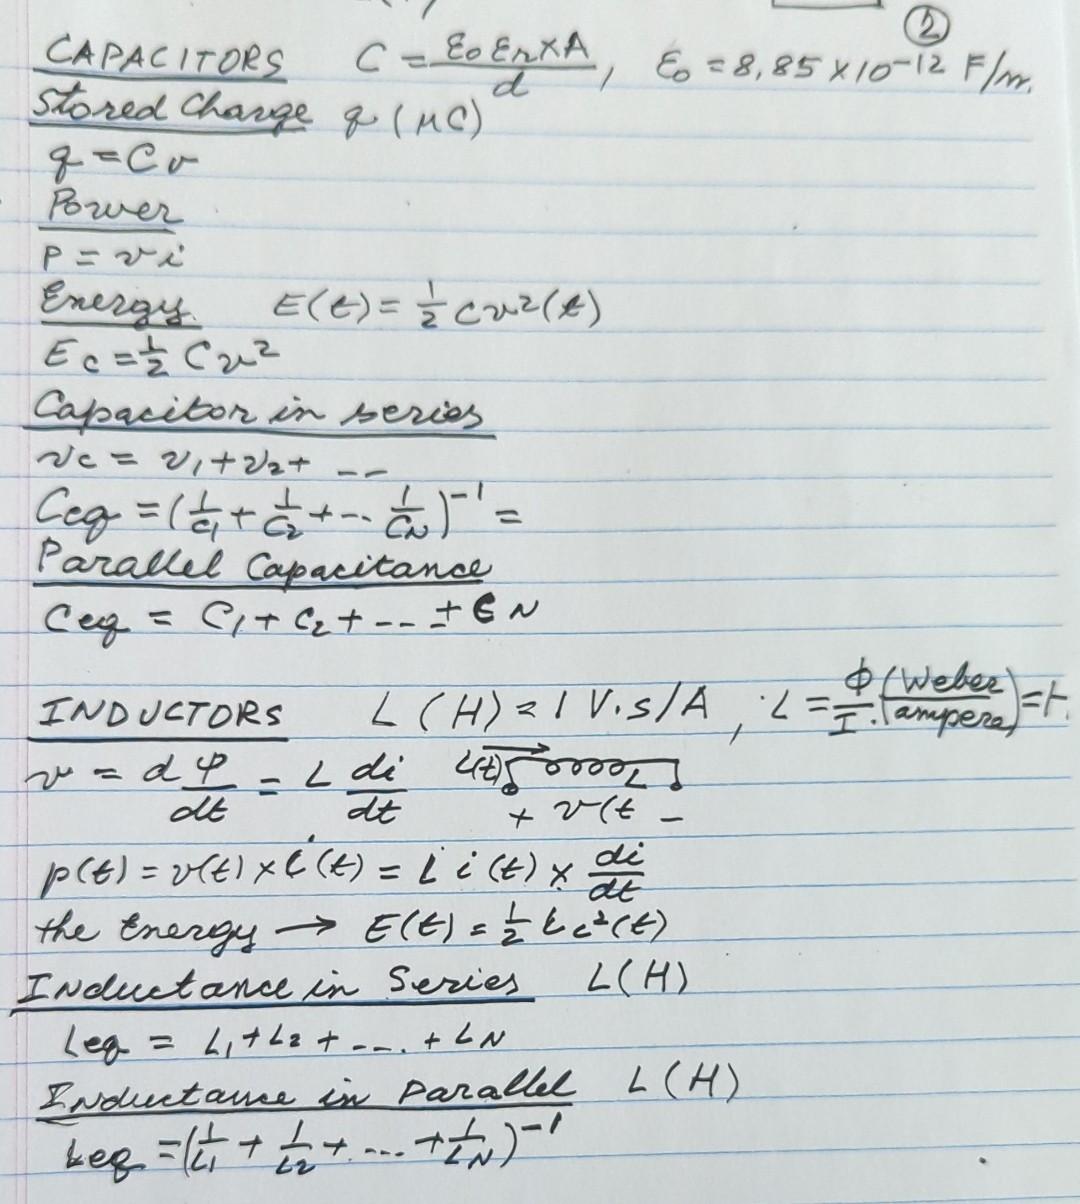 ②
CAPACITORS C = ε₀ εr × A / d , ε₀ = 8,85 × 10⁻¹² F/m.
Stored Charge q (μC)
q = C v
Power
P = v i
Energy E(t) = ½ C v²(t)
Ec = ½ C v²
Capacitor in series
vc = v₁ + v₂ + ---
Ceq = (1/C₁ + 1/C₂ + --- 1/CN)⁻¹ =
Parallel Capacitance
Ceq = C₁ + C₂ + --- + CN
INDUCTORS L (H) = 1 V.s/A , L = Φ/I . (Weber/ampere) = H.
v = d φ/dt = L di/dt i(t) L
+ v(t -
p(t) = v(t) × i(t) = L i(t) × di/dt
the Energy → E(t) = ½ L i²(t)
Inductance in Series L(H)
Leq = L₁ + L₂ + ---. + LN
Inductance in Parallel L(H)
Leq = (1/L₁ + 1/L₂ + .... + 1/LN)⁻¹